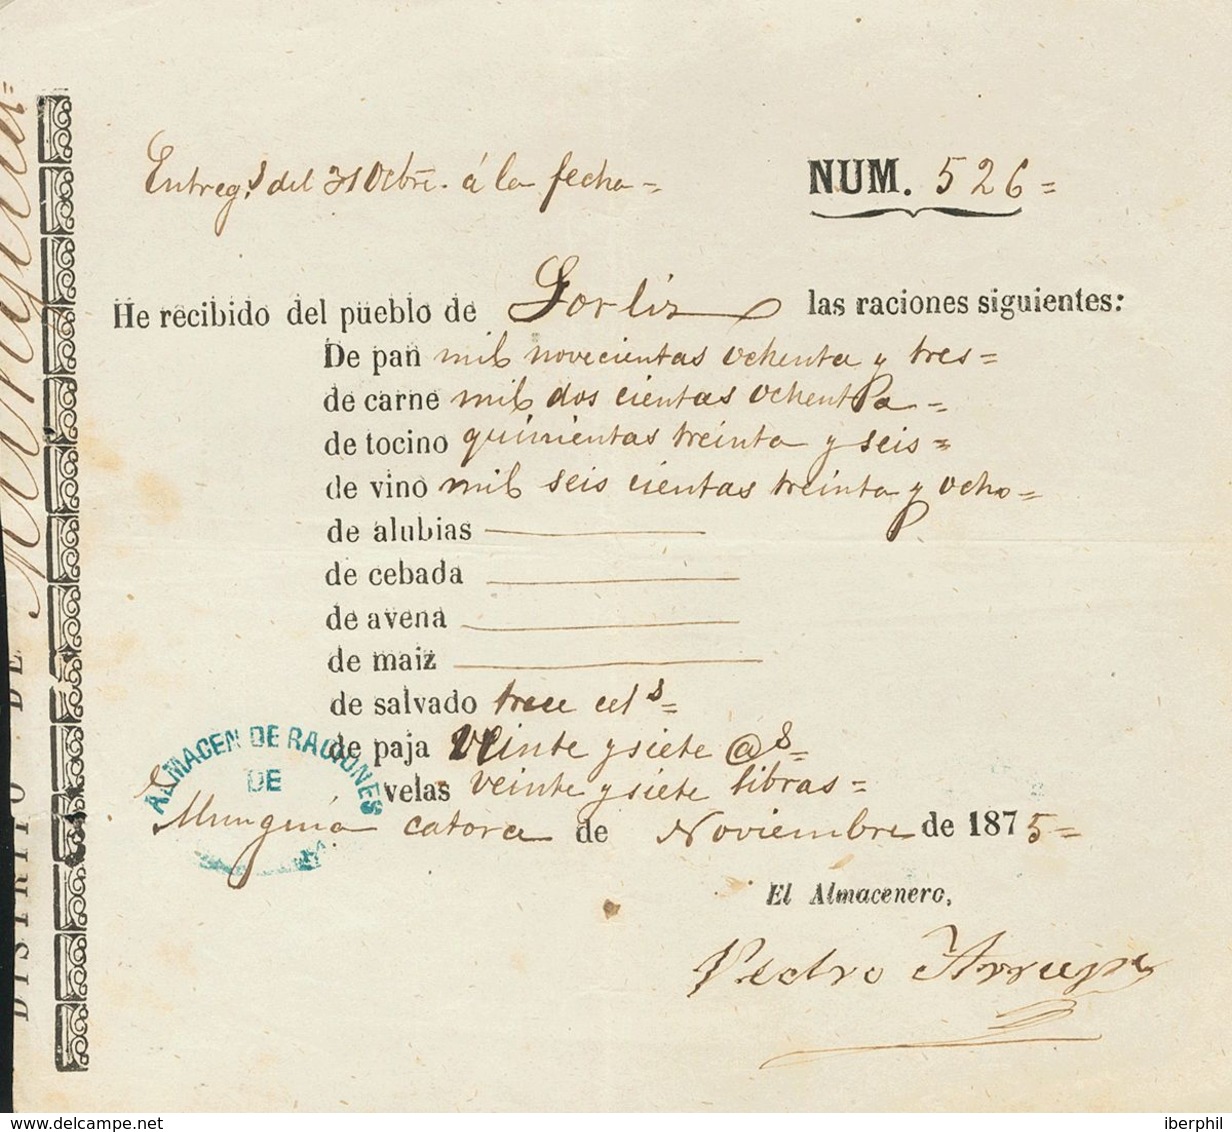 Entreg.s del 31 Octbre. á la fecha=
NUM. 526=
He recibido del pueblo de Gorliz las raciones siguientes:
De pan mil novecientas ochenta y tres=
de carne mil dos cientas ochenta=
de tocino quinientas treinta y seis=
de vino mil seis cientas treinta y ocho=
de alubias
de cebada
de avena
de maiz
de salvado trece cels=
de paja Veinte y siete @s=
velas veinte y siete libras=
ALMACEN DE RACIONES
DE
Munguia catorce de Noviembre de 1875=
El Almacenero,
Pedro Arrupe
DISTRITO DE Munguia=
delcampe.net
iberphil